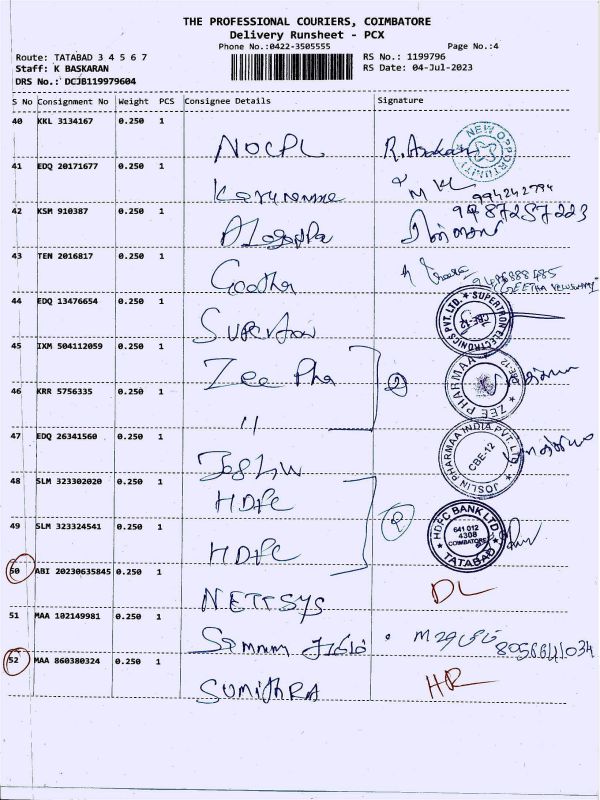 THE PROFESSIONAL COURIERS, COIMBATORE
Delivery Runsheet - PCX
Phone No.:0422-3505555
Page No.:4
Route: TATABAD 3 4 5 6 7
RS No.: 1199796
Staff: K BASKARAN
RS Date: 04-Jul-2023
DRS No.: DCJB119979604
S No Consignment No Weight PCS Consignee Details Signature
40 KKL 3134167 0.250 1
NOCPL
NEW OPPORTUNITY
41 EDQ 20171677 0.250 1
42 KSM 910387 0.250 1
43 TEN 2016817 0.250 1
Geetha
44 EDQ 13476654 0.250 1
SUPERTRON ELECTRONICS PVT. LTD. CBE-12
45 IXM 504112059 0.250 1
Zee Pha
2
ZEE PHARMAA CBE-12
46 KRR 5756335 0.250 1
"
47 EDQ 26341560 0.250 1
JOSLIN PHARMAA INDIA PVT. LTD. CBE-12
48 SLM 323302020 0.250 1
HDFC
2
49 SLM 323324541 0.250 1
HDFC
HDFC BANK LTD 641 012 4308 COIMBATORE TATABAD
50 ABI 20230635845 0.250 1
NETTSYS
DL
51 MAA 102149981 0.250 1
8056641034
52 MAA 860380324 0.250 1
SUMITHRA
HR